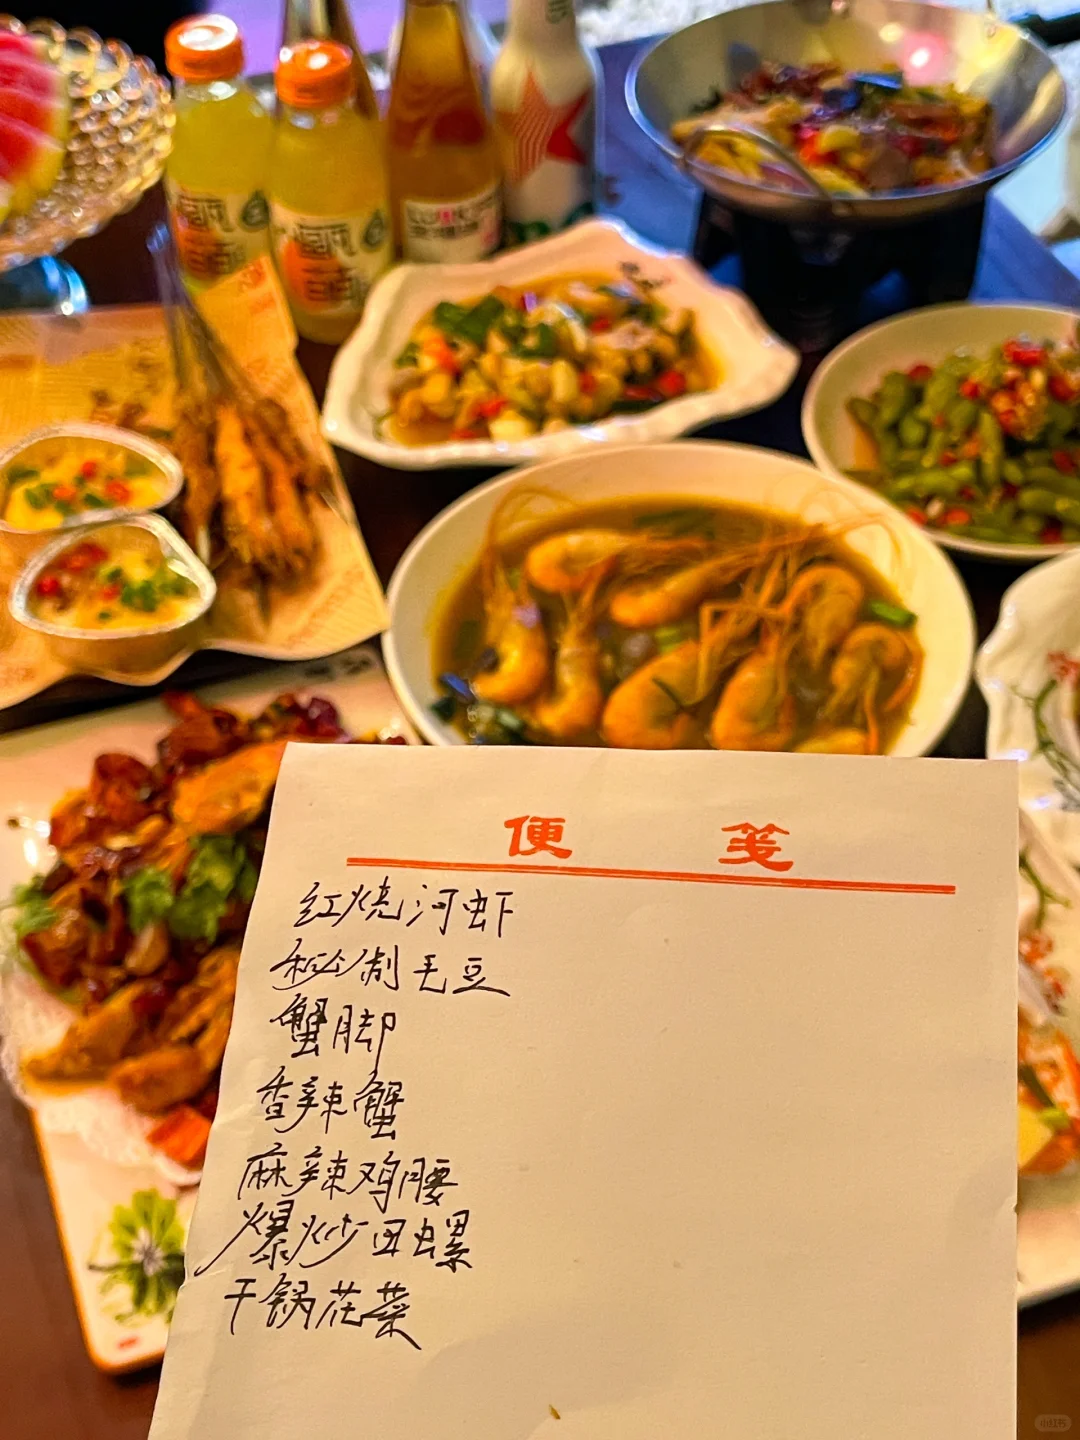 便 笺
红烧河虾
秘制毛豆
蟹脚
香辣蟹
麻辣鸡腰
爆炒田螺
干锅花菜
小红书